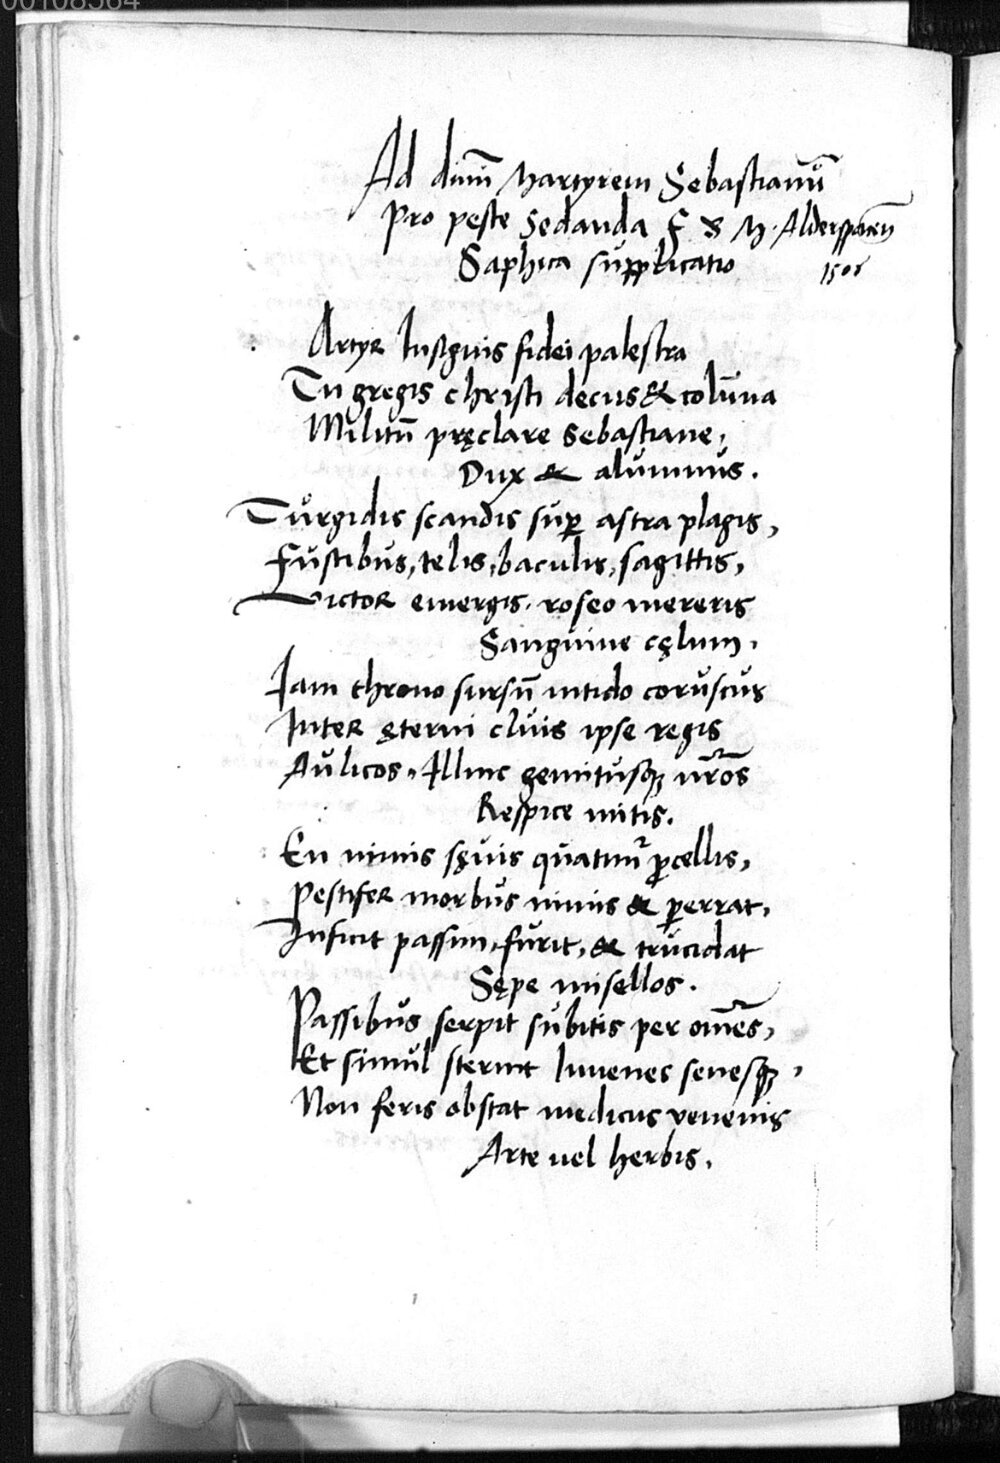 00108564
Ad diuū Martyrem Sebastianū
Pro peste sedanda F S M. Alderspacen̄
Saphica supplicatio 1506
Artyr Insignis fidei palestra
Tu gregis christi decus & colūna
Militū pręclare Sebastiane,
Dux & alumnus.
Turgidis scandis sup̱ astra plagis,
Fustibus, telis, baculis, sagittis,
Victor emergis. roseo mereris
Sanguine cęlum.
Iam throno sursū nitido coruscus
Inter ęterni cluis ipse regis
Aulicos. Illinc gemitusq; nr̄os
Respice mitis.
En nimis sęuis quatimur ꝓcellis,
Pestifer morbus nimis & ꝑerrat,
Inficit passim, furit, & trucidat
Sępe misellos.
Passibus serpit subitis per om̄es,
Et simul sternit Iuuenes senesq;,
Non feris obstat medicus venenis
Arte uel herbis.